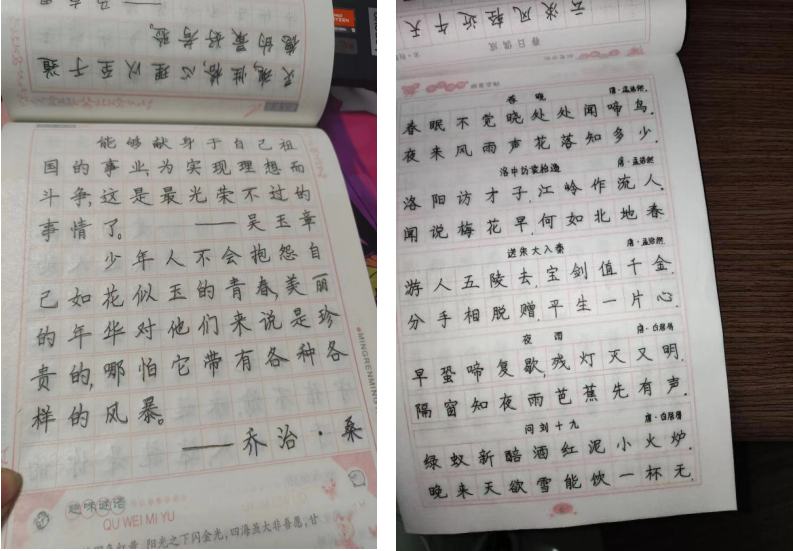 能够献身于自己祖
国的事业,为实现理想而
斗争,这是最光荣不过的
事情了。——吴玉章
少年人不会抱怨自
己如花似玉的青春,美丽
的年华对他们来说是珍
贵的,哪怕它带有各种各
样的风暴。
——乔治·桑
趣味谜语
QU WEI MI YU
阳光之下闪金光,四海
云淡风轻近午天
春日偶成
春晓 唐·孟浩然
春眠不觉晓处处闻啼鸟.
夜来风雨声花落知多少.
洛中访袁拾遗 唐·孟浩然
洛阳访才子,江岭作流人.
闻说梅花早,何如北地春
送朱大入秦 唐·孟浩然
游人五陵去,宝剑值千金.
分手相脱赠,平生一片心.
夜雨 唐·白居易
早蛩啼复歇,残灯灭又明.
隔窗知夜雨芭蕉先有声.
问刘十九 唐·白居易
绿蚁新醅酒红泥小火炉.
晚来天欲雪能饮一杯无.